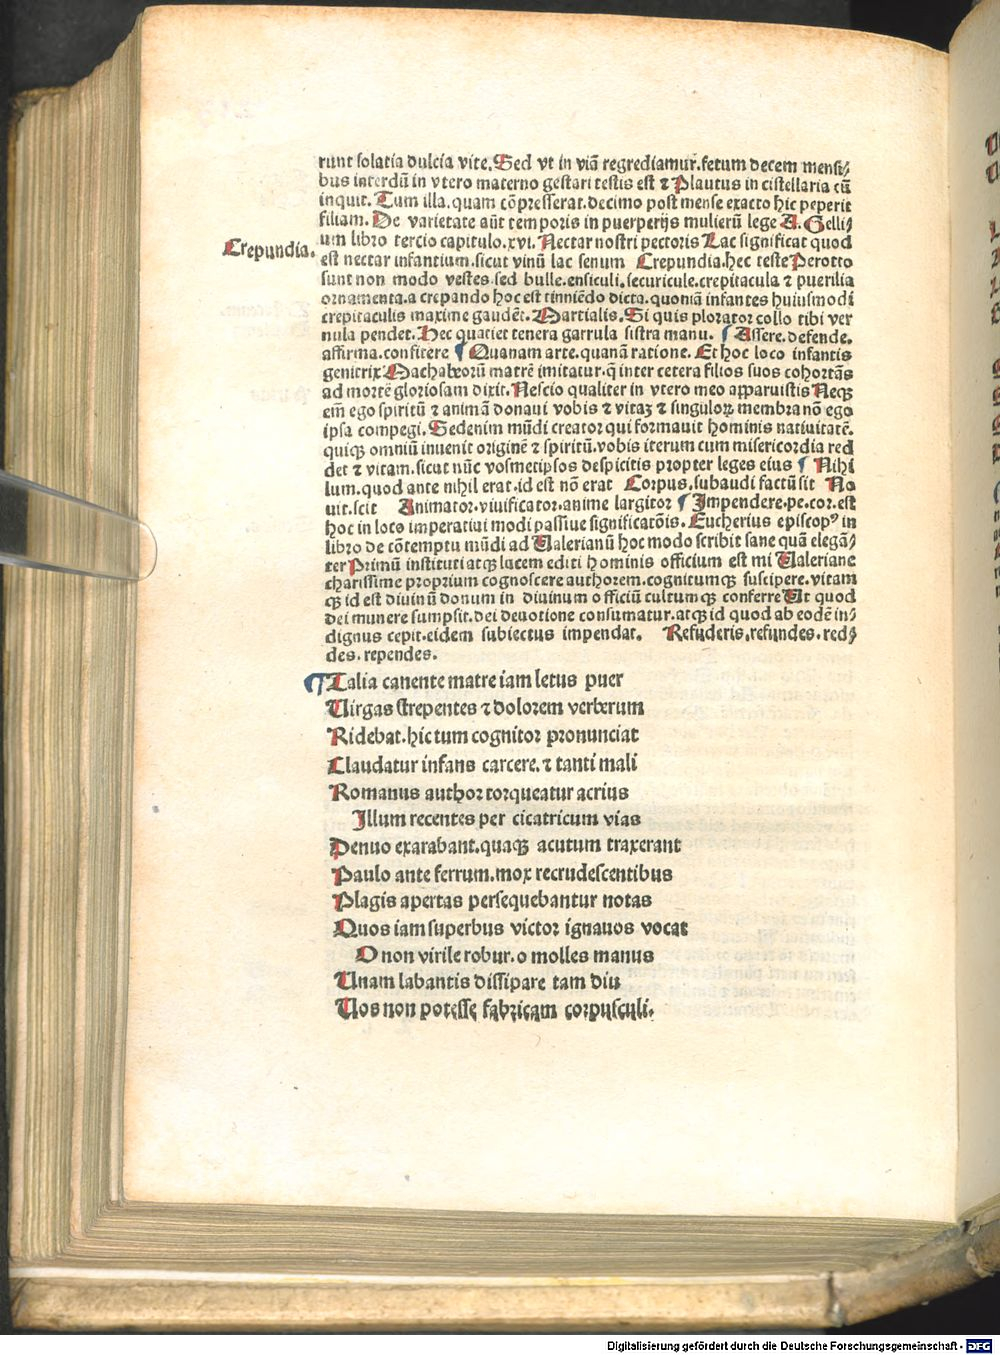 runt solatia dulcia vite. Sed vt in viã regrediamur. fetum decem mensi⸗
bus interdũ in vtero materno gestari testis est ⁊ Plautus in cistellaria cũ
inquit. Tum illa. quam cõpresserat. decimo post mense exacto hic peperit
filiam. De varietate aũt temporis in puerperijs mulierũ lege A. Gelli⸗
um libro tercio capitulo. xvi. Nectar nostri pectoris Lac significat quod
Crepundia.
est nectar infantium. sicut vinũ lac senum Crepundia. hec teste Perotto
sunt non modo vestes sed bulle. ensiculi. securicule. crepitacula ⁊ puerilia
ornamenta. a crepando hoc est tinniẽdo dicta. quoniã infantes huiusmodi
crepitaculis maxime gaudẽt. Martialis. Si quis plorator collo tibi ver
nula pendet. Hec quatiet tenera garrula sistra manu. ¶ Assere. defende.
affirma. confitere ¶ Quanam arte. quanã ratione. Et hoc loco infantis
genitrix Machabeorũ matrẽ imitatur. q̃ inter cetera filios suos cohortãs
ad mortẽ gloriosam dixit. Nescio qualiter in vtero meo apparuistis Neqꝫ
eiñ ego spiritũ ⁊ animã donaui vobis ⁊ vitaꝫ ⁊ singuloꝝ membra nõ ego
ipsa compegi. Sedenim mũdi creator qui formauit hominis natiuitatẽ.
quiqꝫ omniũ inuenit originẽ ⁊ spiritũ. vobis iterum cum misericordia red
det ⁊ vitam. sicut nũc vosmetipsos despicitis propter leges eius ¶ Nihi
lum. quod ante nihil erat. id est nõ erat Corpus. subaudi factũ sit No
uit. scit Animator. viuificator. anime largitor ¶ Impendere. pe. cor. est
hoc in loco imperatiui modi passiue significatõis. Eucherius episcopꝰ in
libro de cõtemptu mũdi ad Ualerianũ hoc modo scribit sane quã elegã⸗
ter Primũ instituti atqꝫ lucem editi hominis officium est mi Ualeriane
charissime proprium cognoscere authorem. cognitumqꝫ suscipere. vitam
qꝫ id est diuinũ donum in diuinum officiũ cultumqꝫ conferre Ut quod
dei munere sumpsit. dei deuotione consumatur. atqꝫ id quod ab eodẽ in⸗
dignus cepit. eidem subiectus impendat. Refuderis. refundes. red⸗
des. rependes.
¶ Talia canente matre iam letus puer
Uirgas strepentes ⁊ dolorem verberum
Ridebat. hic tum cognitor pronunciat
Claudatur infans carcere. ⁊ tanti mali
Romanus author torqueatur acrius
Illum recentes per cicatricum vias
Denuo exarabant. quaqꝫ acutum traxerant
Paulo ante ferrum. mox recrudescentibus
Plagis apertas persequebantur notas
Quos iam superbus victor ignauos vocat
O non virile robur. o molles manus
Unam labantis dissipare tam diu
Uos non potesse fabricam corpusculi.
Digitalisierung gefördert durch die Deutsche Forschungsgemeinschaft - DFG